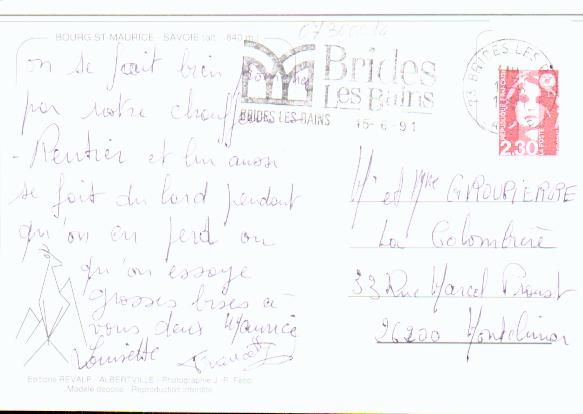 BOURG ST-MAURICE - SAVOIE (alt. 840 m.)
on se fait bien
par notre chauffeur
- Rentier et lui aussi
se fait du lard pendant
qu'on en perd ou
qu'on essaye
grosses bises à
vous deux Maurice
Louisette
Editions REVALP - ALBERTVILLE - Photographie J.-P. Feno
Modèle déposé - Reproduction interdite
07300
Brides
Les Bains
BRIDES LES BAINS
15-6-91
73 BRIDES LES
REPUBLIQUE FRANÇAISE
LA POSTE
2,30
Mr et Mme GROUPIERRE
La Colombière
33 Rue Marcel Proust
26200 Montélimar